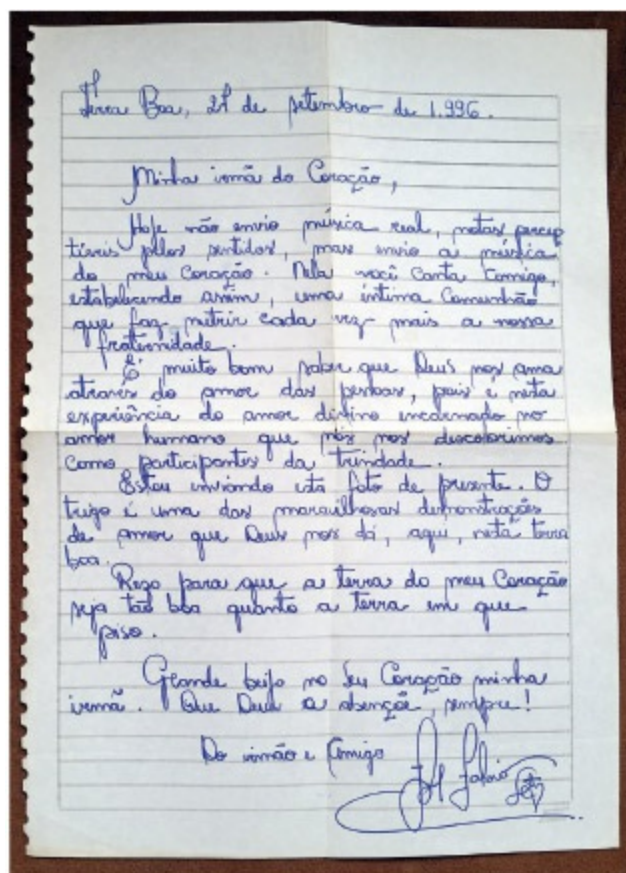 Terra Boa, 27 de setembro de 1.996.
Minha irmã do Coração,
Hoje não envio música real, notas percep
tíveis pelos sentidos, mas envio a música
do meu Coração. Nela você Canta Comigo,
estabelecendo assim, uma íntima Comunhão
que faz nutrir cada vez mais a nossa
fraternidade.
É muito bom saber que Deus nos ama
através do amor das pessoas, pois é nesta
experiência do amor divino encarnado no
amor humano que nós nos descobrimos
como participantes da trindade.
Estou enviando esta foto de presente. O
trigo é uma das maravilhosas demonstrações
de amor que Deus nos dá, aqui, nesta terra
boa.
Rezo para que a terra do meu Coração
seja tão boa quanto a terra em que
piso.
Grande beijo no seu Coração minha
irmã. Que Deus a abençõe, sempre!
Do irmão e Amigo
Fábio